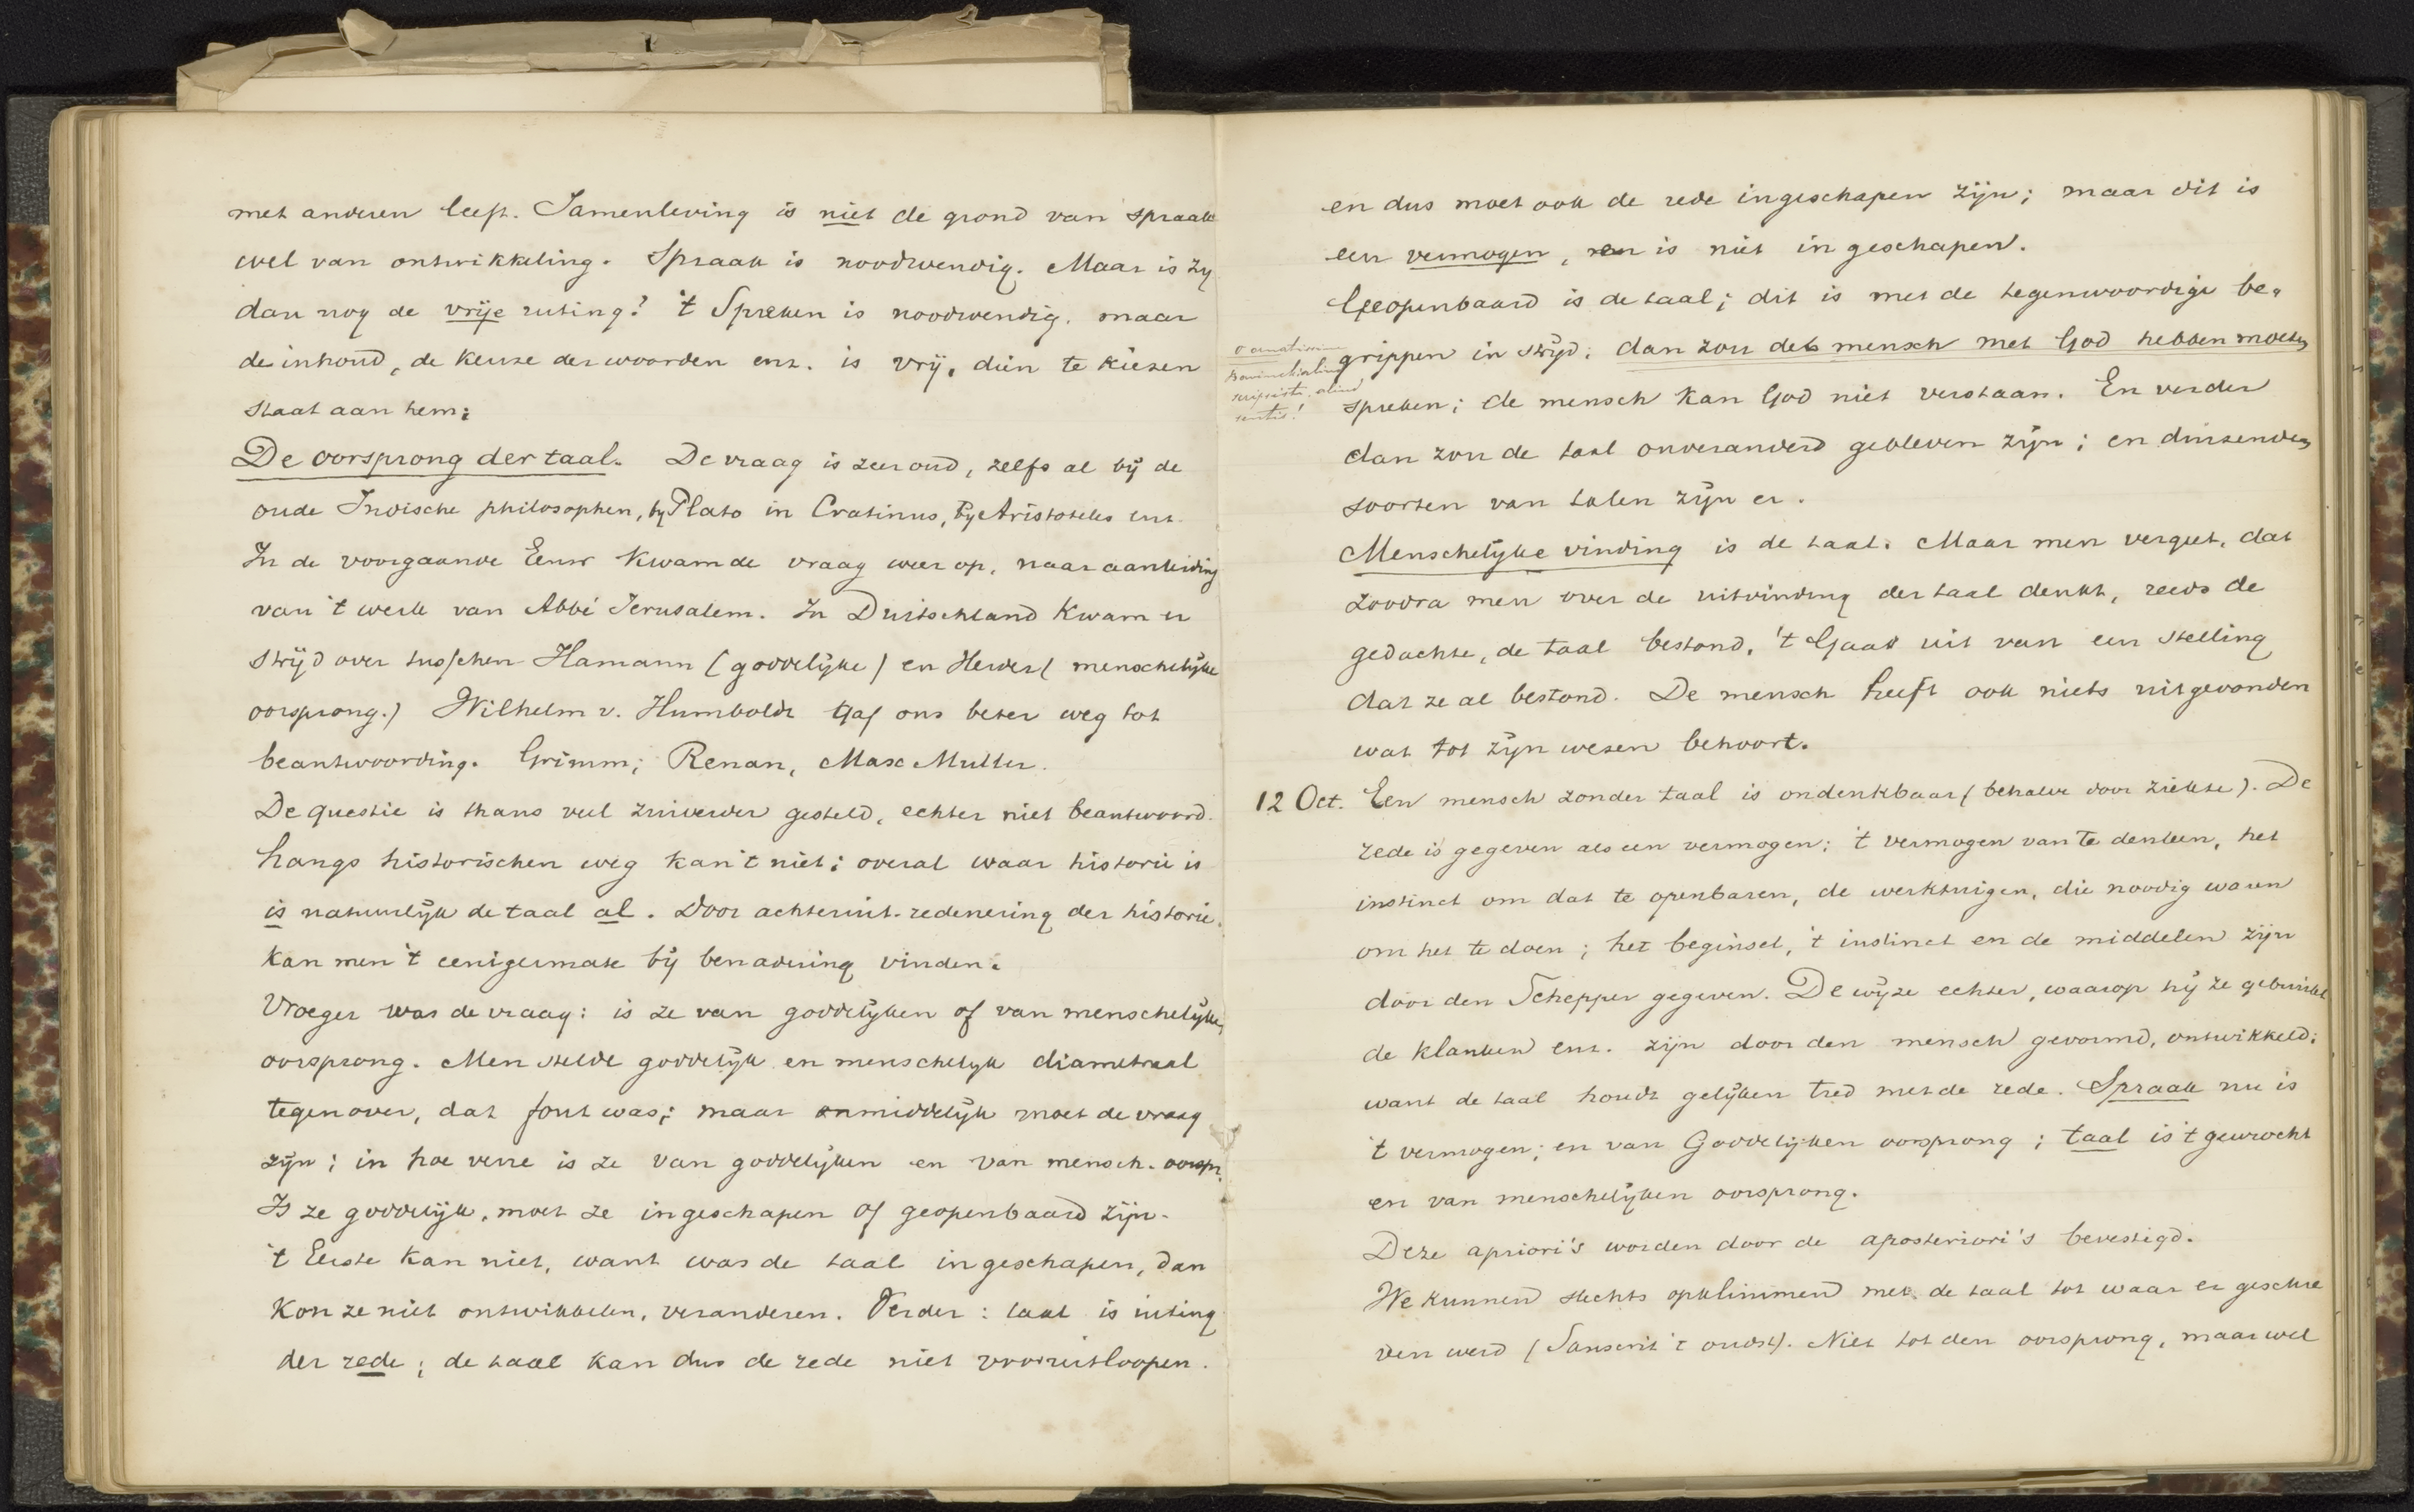 met anderen leeft. Samenleving is niet de grond van spraak
wel van ontwikkeling. Spraak is noodwendig. Maar is zy
dan nog de vrije uiting? 't Spreken is noodwendig. maar
de inhoud, de keuze der woorden enz. is vrij, dien te kiezen
staat aan hem.
De oorsprong der taal. De vraag is zeer oud, zelfs al bij de
oude Indische philosophen, by Plato in Cratinus, by Aristoteles enz.
In de voorgaande Eeuw kwam de vraag weer op, naar aanleiding
van 't werk van Abbé Jerusalem. In Duitschland kwam er
strijd over tusschen Hamann (goddelijke) en Herder (menschelijke
oorsprong.) Wilhelm v. Humboldt gaf ons beter weg tot
beantwoording. Grimm; Renan, Max Muller.
De questie is thans veel zuiverder gesteld, echter niet beantwoord.
Langs historischen weg kan 't niet; overal waar historie is
is natuurlijk de taal al. Door achteruit-redenering der historie
kan men 't eenigermate bij benadering vinden.
Vroeger was de vraag: is ze van goddelijken of van menschelijken
oorsprong. Men stelde goddelijk en menschelyk diametraal
tegenover, dat fout was; maar onmiddelijk moet de vraag
zijn: in hoe verre is ze van goddelijken en van mensch. oorspr.
Is ze goddelijk, moet ze ingeschapen of geopenbaard zijn.
't Eerste kan niet, want was de taal ingeschapen, dan
kon ze niet ontwikkelen, veranderen. Verder: taal is uiting
der rede; de taal kan dus de rede niet vooruitloopen.
en dus moet ook de rede ingeschapen zijn; maar dit is
een vermogen, en is niet ingeschapen.
Geopenbaard is de taal; dit is met de tegenwoordige be-
grippen in strijd; dan zou de mensch met God hebben moeten
spreken; de mensch kan God niet verstaan. En verder
dan zou de taal onveranderd gebleven zijn; en duizenden
soorten van talen zijn er.
Menschelijke vinding is de taal. Maar men vergeet, dat
zoodra men over de uitvinding der taal denkt, reeds de
gedachte, de taal bestond. 't Gaat uit van een stelling
dat ze al bestond. De mensch heeft ook niets uitgevonden
wat tot zijn wezen behoort.
12 Oct. Een mensch zonder taal is ondenkbaar (behalve door ziekte). De
rede is gegeven als een vermogen: 't vermogen van te denken, het
instinct om dat te openbaren, de werktuigen, die noodig waren
om het te doen; het beginsel, 't instinct en de middelen zijn
door den Schepper gegeven. De wijze echter, waarop hij ze gebruikt
de klanken enz. zijn door den mensch gevormd, ontwikkeld;
want de taal houdt gelijken tred met de rede. Spraak nu is
't vermogen; en van Goddelijken oorsprong; taal is 't gewrocht
en van menschelijken oorsprong.
Deze apriori's worden door de aposteriori's bevestigd.
We kunnen slechts opklimmen met de taal tot waar er geschre
ven werd (Sanscrit 't oudst). Niet tot den oorsprong, maar wel